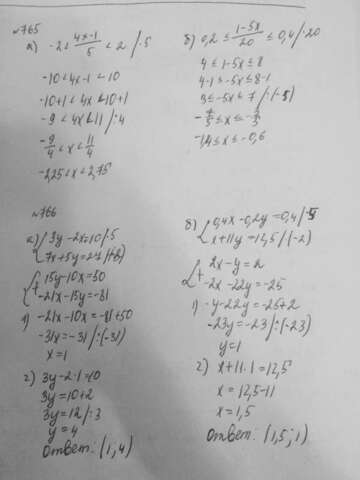 №765
а) -2 < (4x-1)/5 < 2 /·5
-10 < 4x-1 < 10
-10+1 < 4x < 10+1
-9 < 4x < 11 /:4
-9/4 < x < 11/4
-2,25 < x < 2,75
б) 0,2 ≤ (1-5x)/20 ≤ 0,4 /·20
4 ≤ 1-5x ≤ 8
4-1 ≤ -5x ≤ 8-1
3 ≤ -5x ≤ 7 /:(-5)
-7/5 ≤ x ≤ -3/5
-1,4 ≤ x ≤ -0,6
№766
а) { 3y-2x=10 /·5
7x+5y=27 /·(-3)
{+ 15y-10x=50
-21x-15y=-81
1) -21x-10x=-81+50
-31x=-31 /:(-31)
x=1
2) 3y-2·1=10
3y=10+2
3y=12 /:3
y=4
Ответ: (1; 4)
б) { 0,4x-0,2y=0,4 /·5
x+11y=12,5 /·(-2)
{+ 2x-y=2
-2x-22y=-25
1) -y-22y=-25+2
-23y=-23 /:(-23)
y=1
2) x+11·1=12,5
x=12,5-11
x=1,5
Ответ: (1,5; 1)